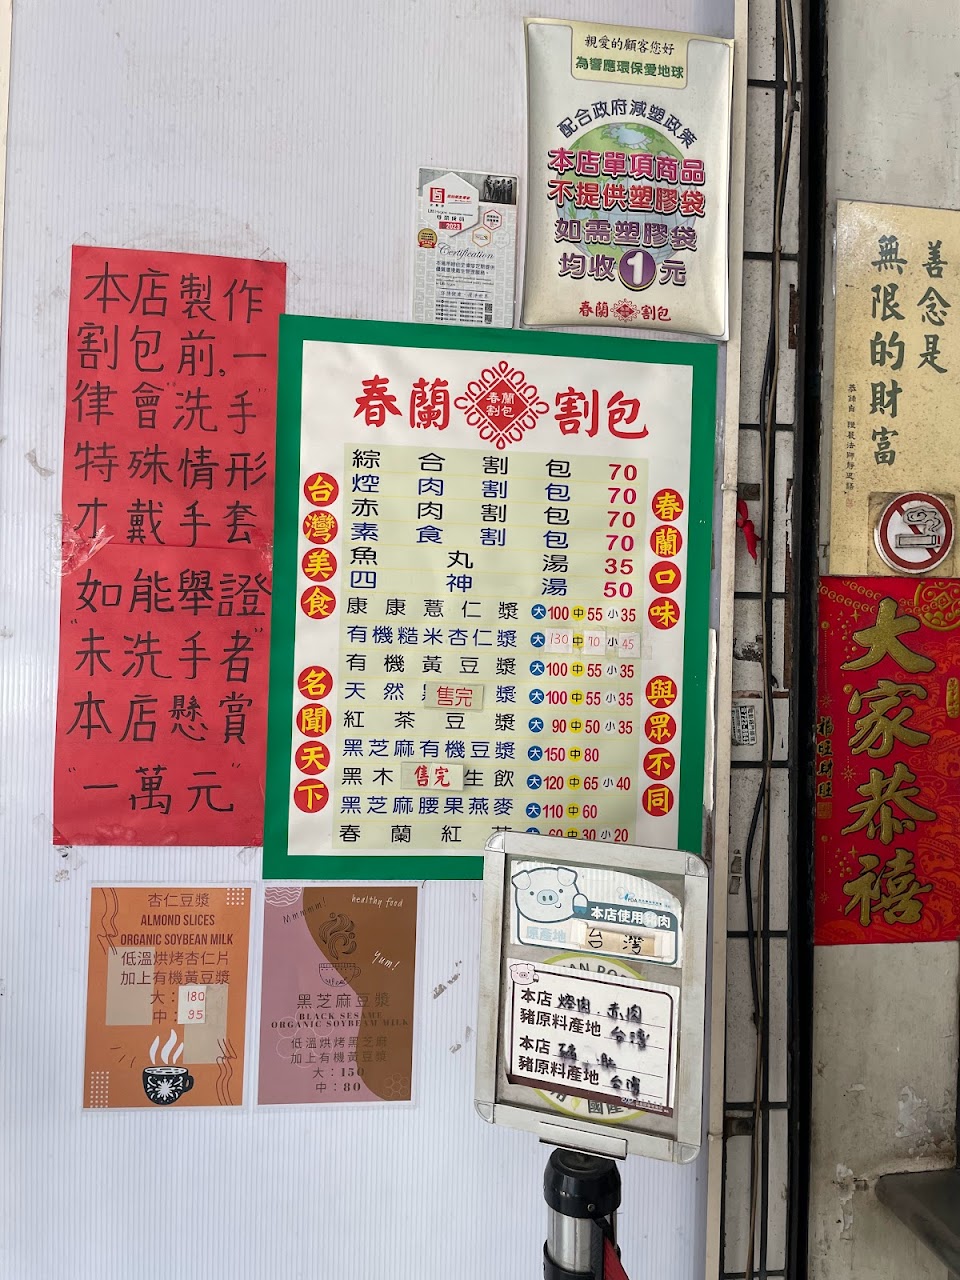 親愛的顧客您好
為響應環保愛地球
配合政府減塑政策
本店單項商品
不提供塑膠袋
如需塑膠袋
均收1元
春蘭割包
2023
Certification
本店製作
割包前,一
律會"洗手"
特殊情形
才戴手套
如能舉證
"未洗手者"
本店懸賞
"一萬元"
春蘭 春蘭割包 割包
台灣美食
名聞天下
綜合割包 70
焢肉割包 70
赤肉割包 70
素食割包 70
魚丸湯 35
四神湯 50
康康薏仁漿 大100 中55 小35
有機糙米杏仁漿 大130 中70 小45
有機黃豆漿 大100 中55 小35
天然 售完 漿 大100 中55 小35
紅茶豆漿 大90 中50 小35
黑芝麻有機豆漿 大150 中80
黑木 售完 生飲 大120 中65 小40
黑芝麻腰果燕麥 大110 中60
春蘭紅茶 大60 中30 小20
春蘭口味
與眾不同
杏仁豆漿
ALMOND SLICES
ORGANIC SOYBEAN MILK
低溫烘烤杏仁片
加上有機黃豆漿
大:180
中:95
Mmmmm!
healthy food
Yum!
黑芝麻豆漿
BLACK SESAME
ORGANIC SOYBEAN MILK
低溫烘烤黑芝麻
加上有機黃豆漿
大:150
中:80
本店使用豬肉
原產地 台灣
本店 焢肉.赤肉
豬原料產地 台灣
本店
豬原料產地 台灣
善念是
無限的財富
大家恭禧
福旺財旺